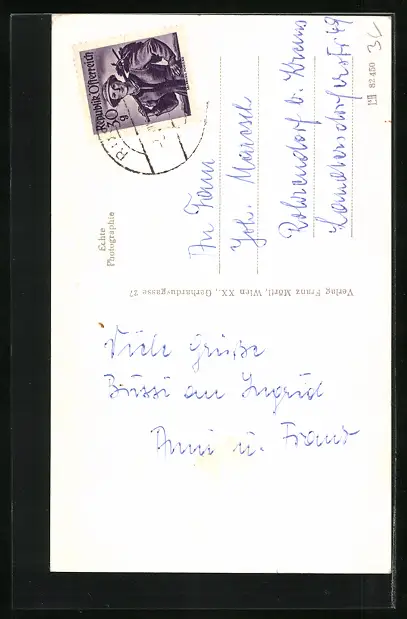 Republik Österreich
An Fam
Joh. Maresch
Rohrendorf b. Krems
Landersdorferstr. 49
82 450
Echte
Photographie
Verlag Franz Mörtl, Wien XX., Gerhardusgasse 27
Viele Grüße
Bussi an Ingrid
Anni u. Franz